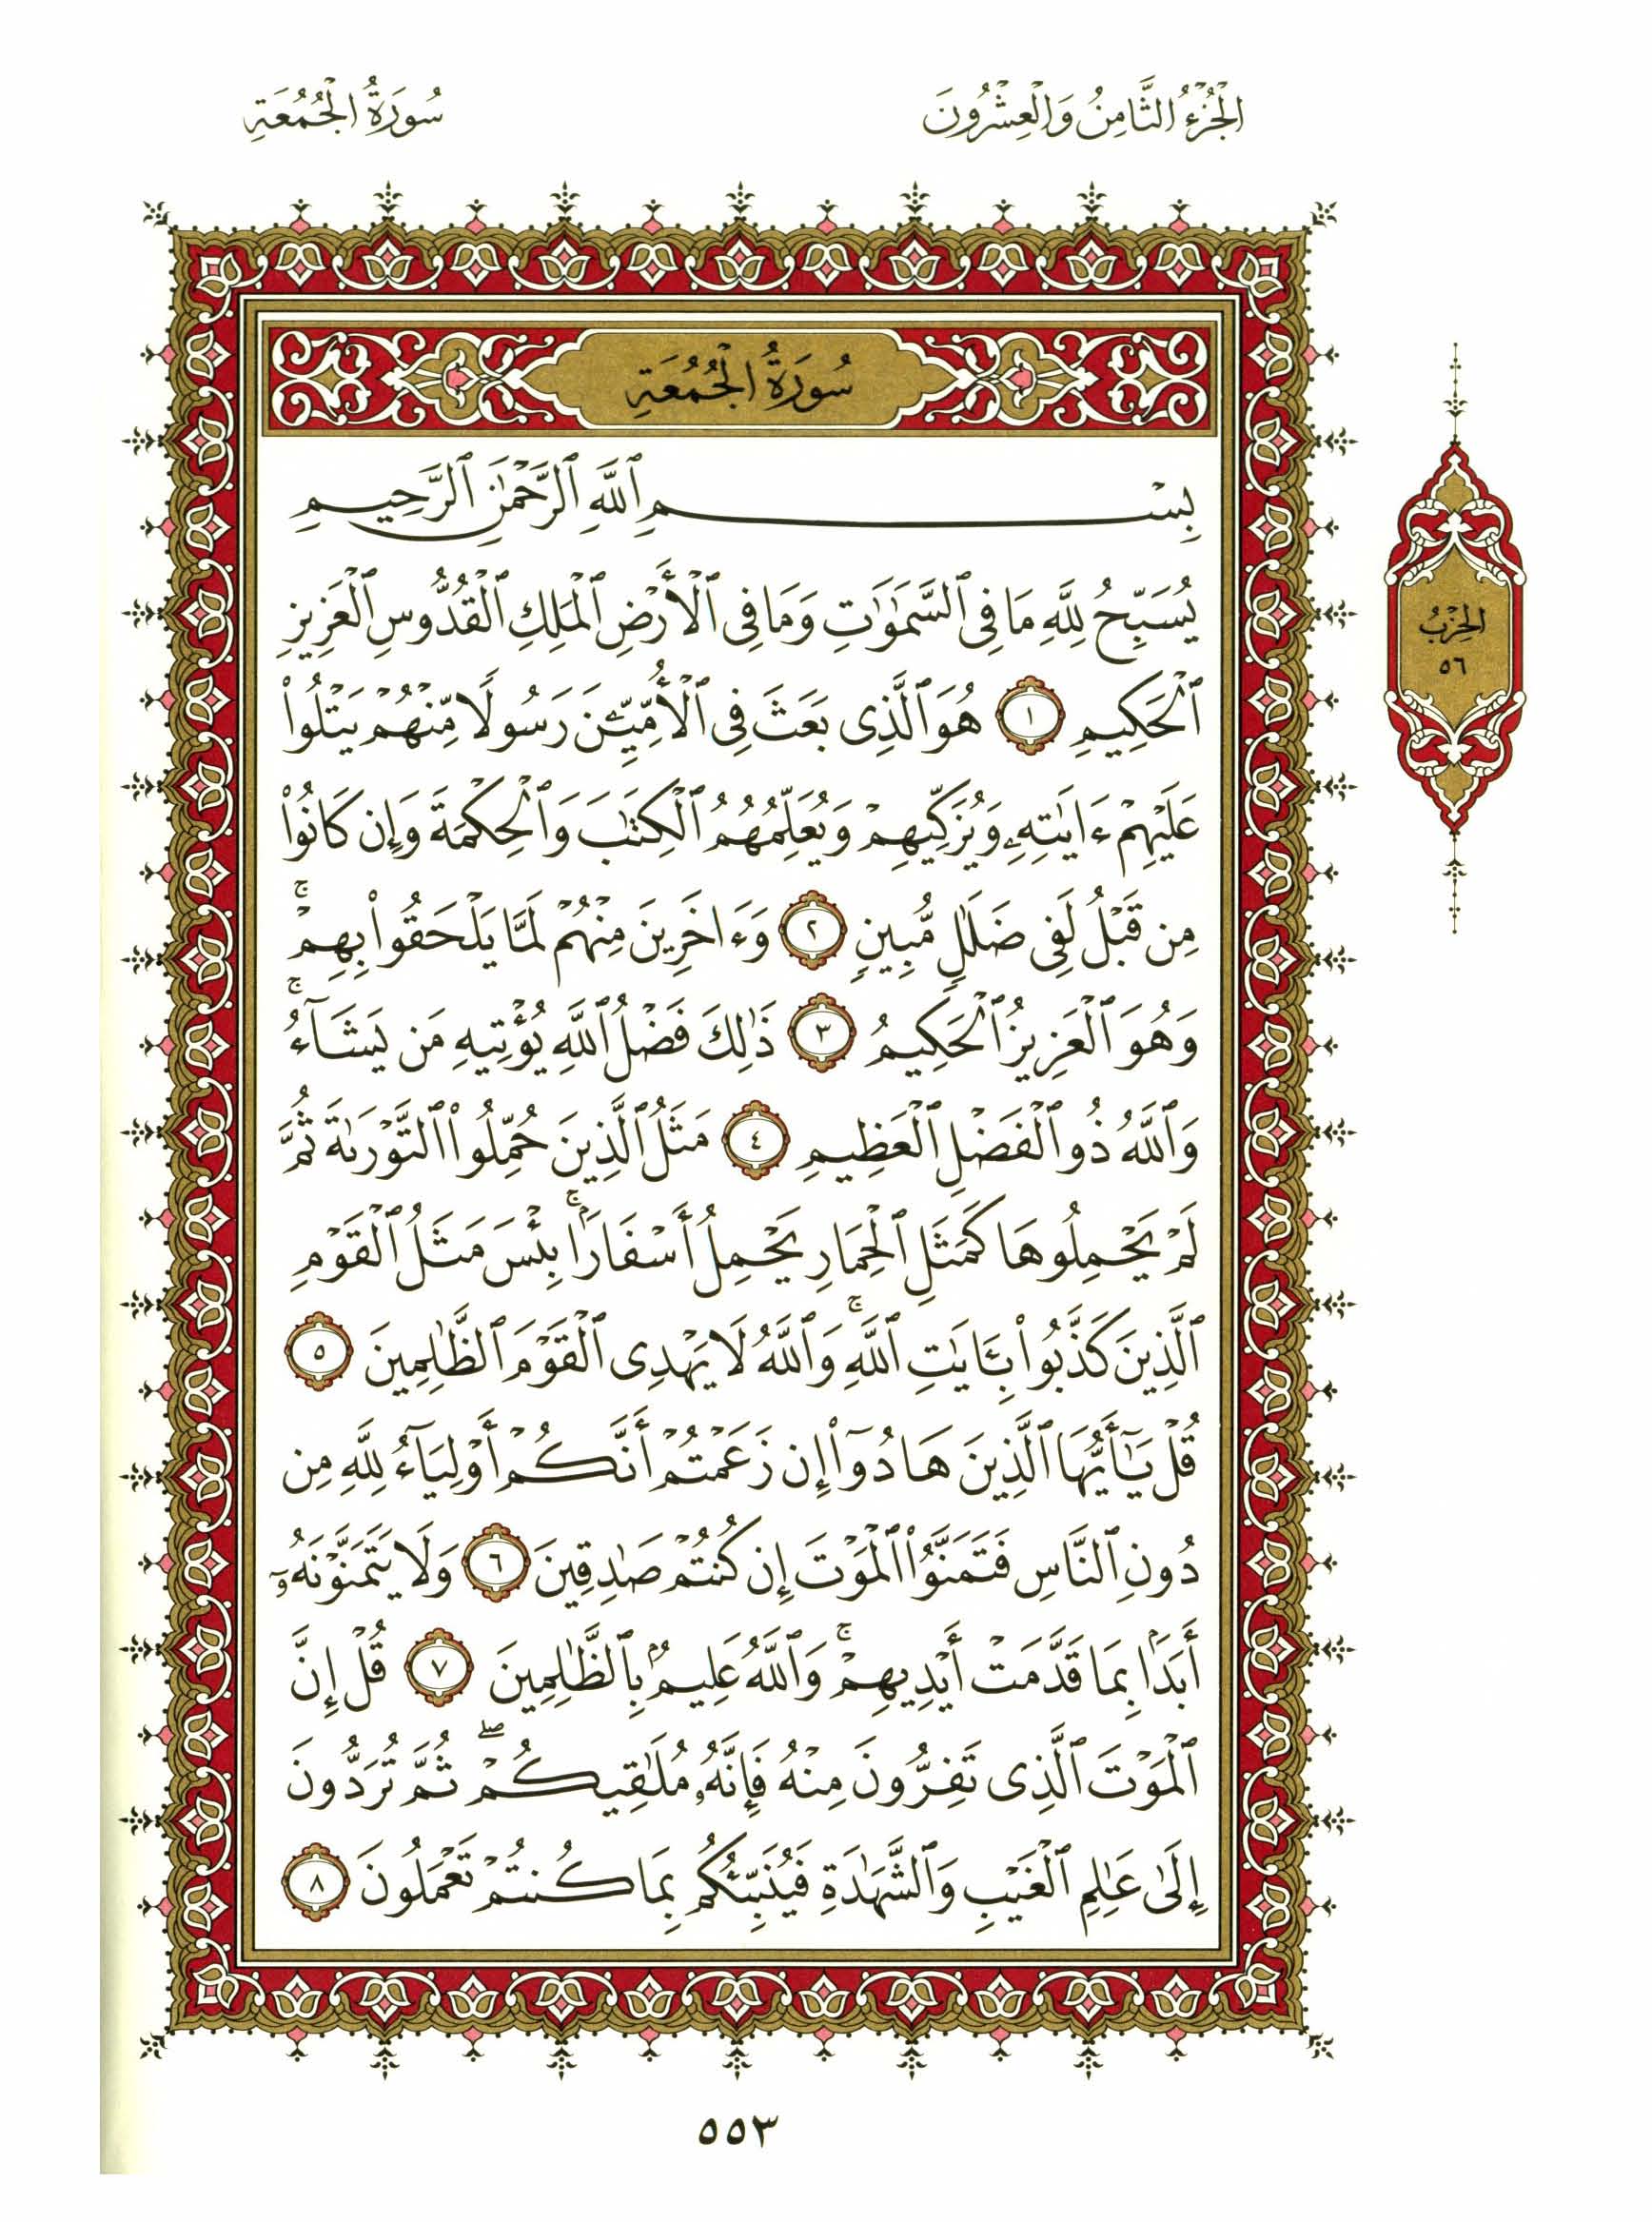 الجُزْءُ الثَّامِنُ وَالعِشْرُونَ
سُورَةُ الجُمُعَةِ
سُورَةُ الجُمُعَةِ
بِسْمِ ٱللَّهِ ٱلرَّحْمَٰنِ ٱلرَّحِيمِ
يُسَبِّحُ لِلَّهِ مَا فِى ٱلسَّمَٰوَٰتِ وَمَا فِى ٱلْأَرْضِ ٱلْمَلِكِ ٱلْقُدُّوسِ ٱلْعَزِيزِ
ٱلْحَكِيمِ ١ هُوَ ٱلَّذِى بَعَثَ فِى ٱلْأُمِّيِّـۧنَ رَسُولًا مِّنْهُمْ يَتْلُوا۟
عَلَيْهِمْ ءَايَٰتِهِۦ وَيُزَكِّيهِمْ وَيُعَلِّمُهُمُ ٱلْكِتَٰبَ وَٱلْحِكْمَةَ وَإِن كَانُوا۟
مِن قَبْلُ لَفِى ضَلَٰلٍ مُّبِينٍ ٢ وَءَاخَرِينَ مِنْهُمْ لَمَّا يَلْحَقُوا۟ بِهِمْ ۚ
وَهُوَ ٱلْعَزِيزُ ٱلْحَكِيمُ ٣ ذَٰلِكَ فَضْلُ ٱللَّهِ يُؤْتِيهِ مَن يَشَآءُ ۚ
وَٱللَّهُ ذُو ٱلْفَضْلِ ٱلْعَظِيمِ ٤ مَثَلُ ٱلَّذِينَ حُمِّلُوا۟ ٱلتَّوْرَىٰةَ ثُمَّ
لَمْ يَحْمِلُوهَا كَمَثَلِ ٱلْحِمَارِ يَحْمِلُ أَسْفَارًۢا ۚ بِئْسَ مَثَلُ ٱلْقَوْمِ
ٱلَّذِينَ كَذَّبُوا۟ بِـَٔايَٰتِ ٱللَّهِ ۚ وَٱللَّهُ لَا يَهْدِى ٱلْقَوْمَ ٱلظَّٰلِمِينَ ٥
قُلْ يَٰٓأَيُّهَا ٱلَّذِينَ هَادُوٓا۟ إِن زَعَمْتُمْ أَنَّكُمْ أَوْلِيَآءُ لِلَّهِ مِن
دُونِ ٱلنَّاسِ فَتَمَنَّوُا۟ ٱلْمَوْتَ إِن كُنتُمْ صَٰدِقِينَ ٦ وَلَا يَتَمَنَّوْنَهُۥٓ
أَبَدًۢا بِمَا قَدَّمَتْ أَيْدِيهِمْ ۚ وَٱللَّهُ عَلِيمٌۢ بِٱلظَّٰلِمِينَ ٧ قُلْ إِنَّ
ٱلْمَوْتَ ٱلَّذِى تَفِرُّونَ مِنْهُ فَإِنَّهُۥ مُلَٰقِيكُمْ ۖ ثُمَّ تُرَدُّونَ
إِلَىٰ عَٰلِمِ ٱلْغَيْبِ وَٱلشَّهَٰدَةِ فَيُنَبِّئُكُم بِمَا كُنتُمْ تَعْمَلُونَ ٨
الحِزْبُ
٥٦
٥٥٣